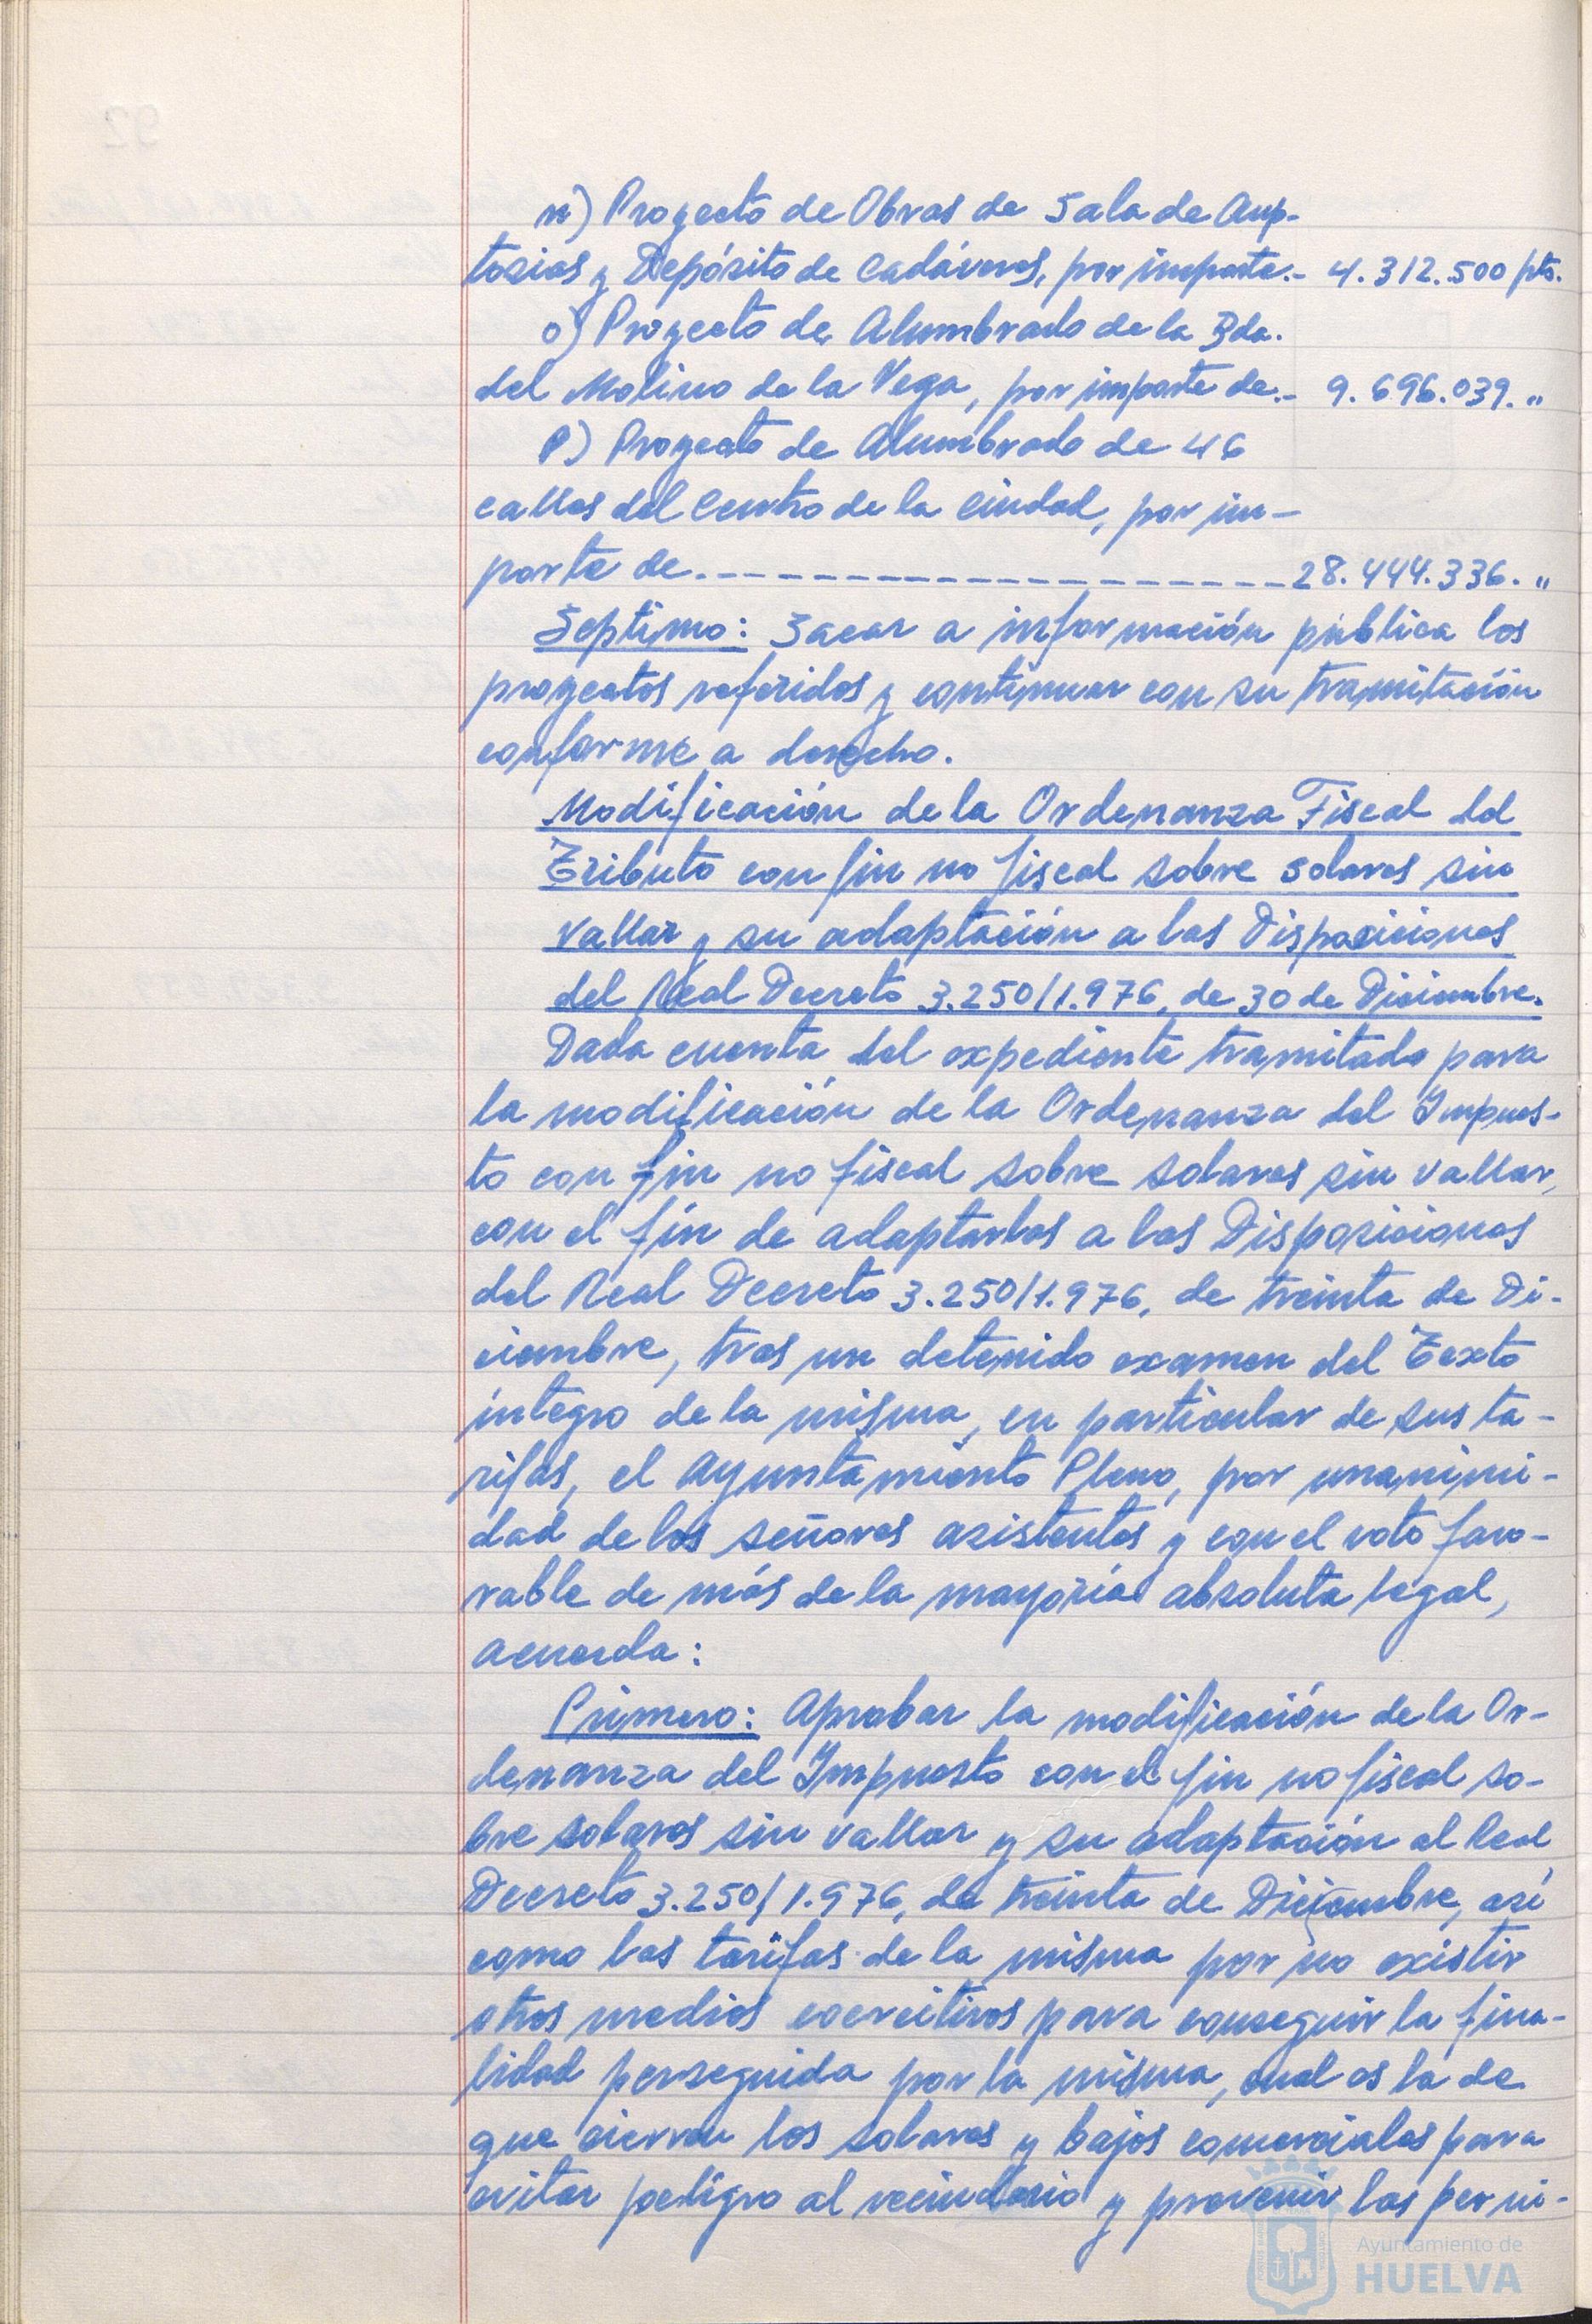 n) Proyecto de Obras de Sala de Aup-
tosias y Depósito de Cadáveres, por importe.- 4.312.500 pts.
o) Proyecto de Alumbrado de la Bda.
del Molino de la Vega, por importe de.- 9.696.039. "
p) Proyecto de Alumbrado de 46
calles del Centro de la Ciudad, por im-
porte de.------------------- 28.444.336. "
Septimo: Sacar a información pública los
proyectos referidos y continuar con su tramitación
conforme a derecho.
Modificación de la Ordenanza Fiscal del
Tributo con fin no fiscal sobre solares sin
vallar y su adaptación a las Disposiciones
del Real Decreto 3.250/1.976, de 30 de Diciembre.
Dada cuenta del expediente tramitado para
la modificación de la Ordenanza del Impues-
to con fin no fiscal sobre solares sin vallar,
con el fín de adaptarlas a las Disposiciones
del Real Decreto 3.250/1.976, de treinta de Di-
ciembre, tras un detenido examen del Texto
íntegro de la misma, en particular de sus ta-
rifas, el Ayuntamiento Pleno, por unanimi-
dad de los señores asistentes y con el voto favo-
rable de más de la mayoría absoluta legal,
acuerda:
Primero: Aprobar la modificación de la Or-
denanza del Impuesto con el fin no fiscal so-
bre solares sin vallar y su adaptación al Real
Decreto 3.250/1.976, de treinta de Diciembre, así
como las tarifas de la misma por no existir
otros medios coercitivos para conseguir la fina-
lidad perseguida por la misma, cual es la de
que cierren los solares y bajos comerciales para
evitar peligro al vecindario y prevenir las perni-
Ayuntamiento de
HUELVA